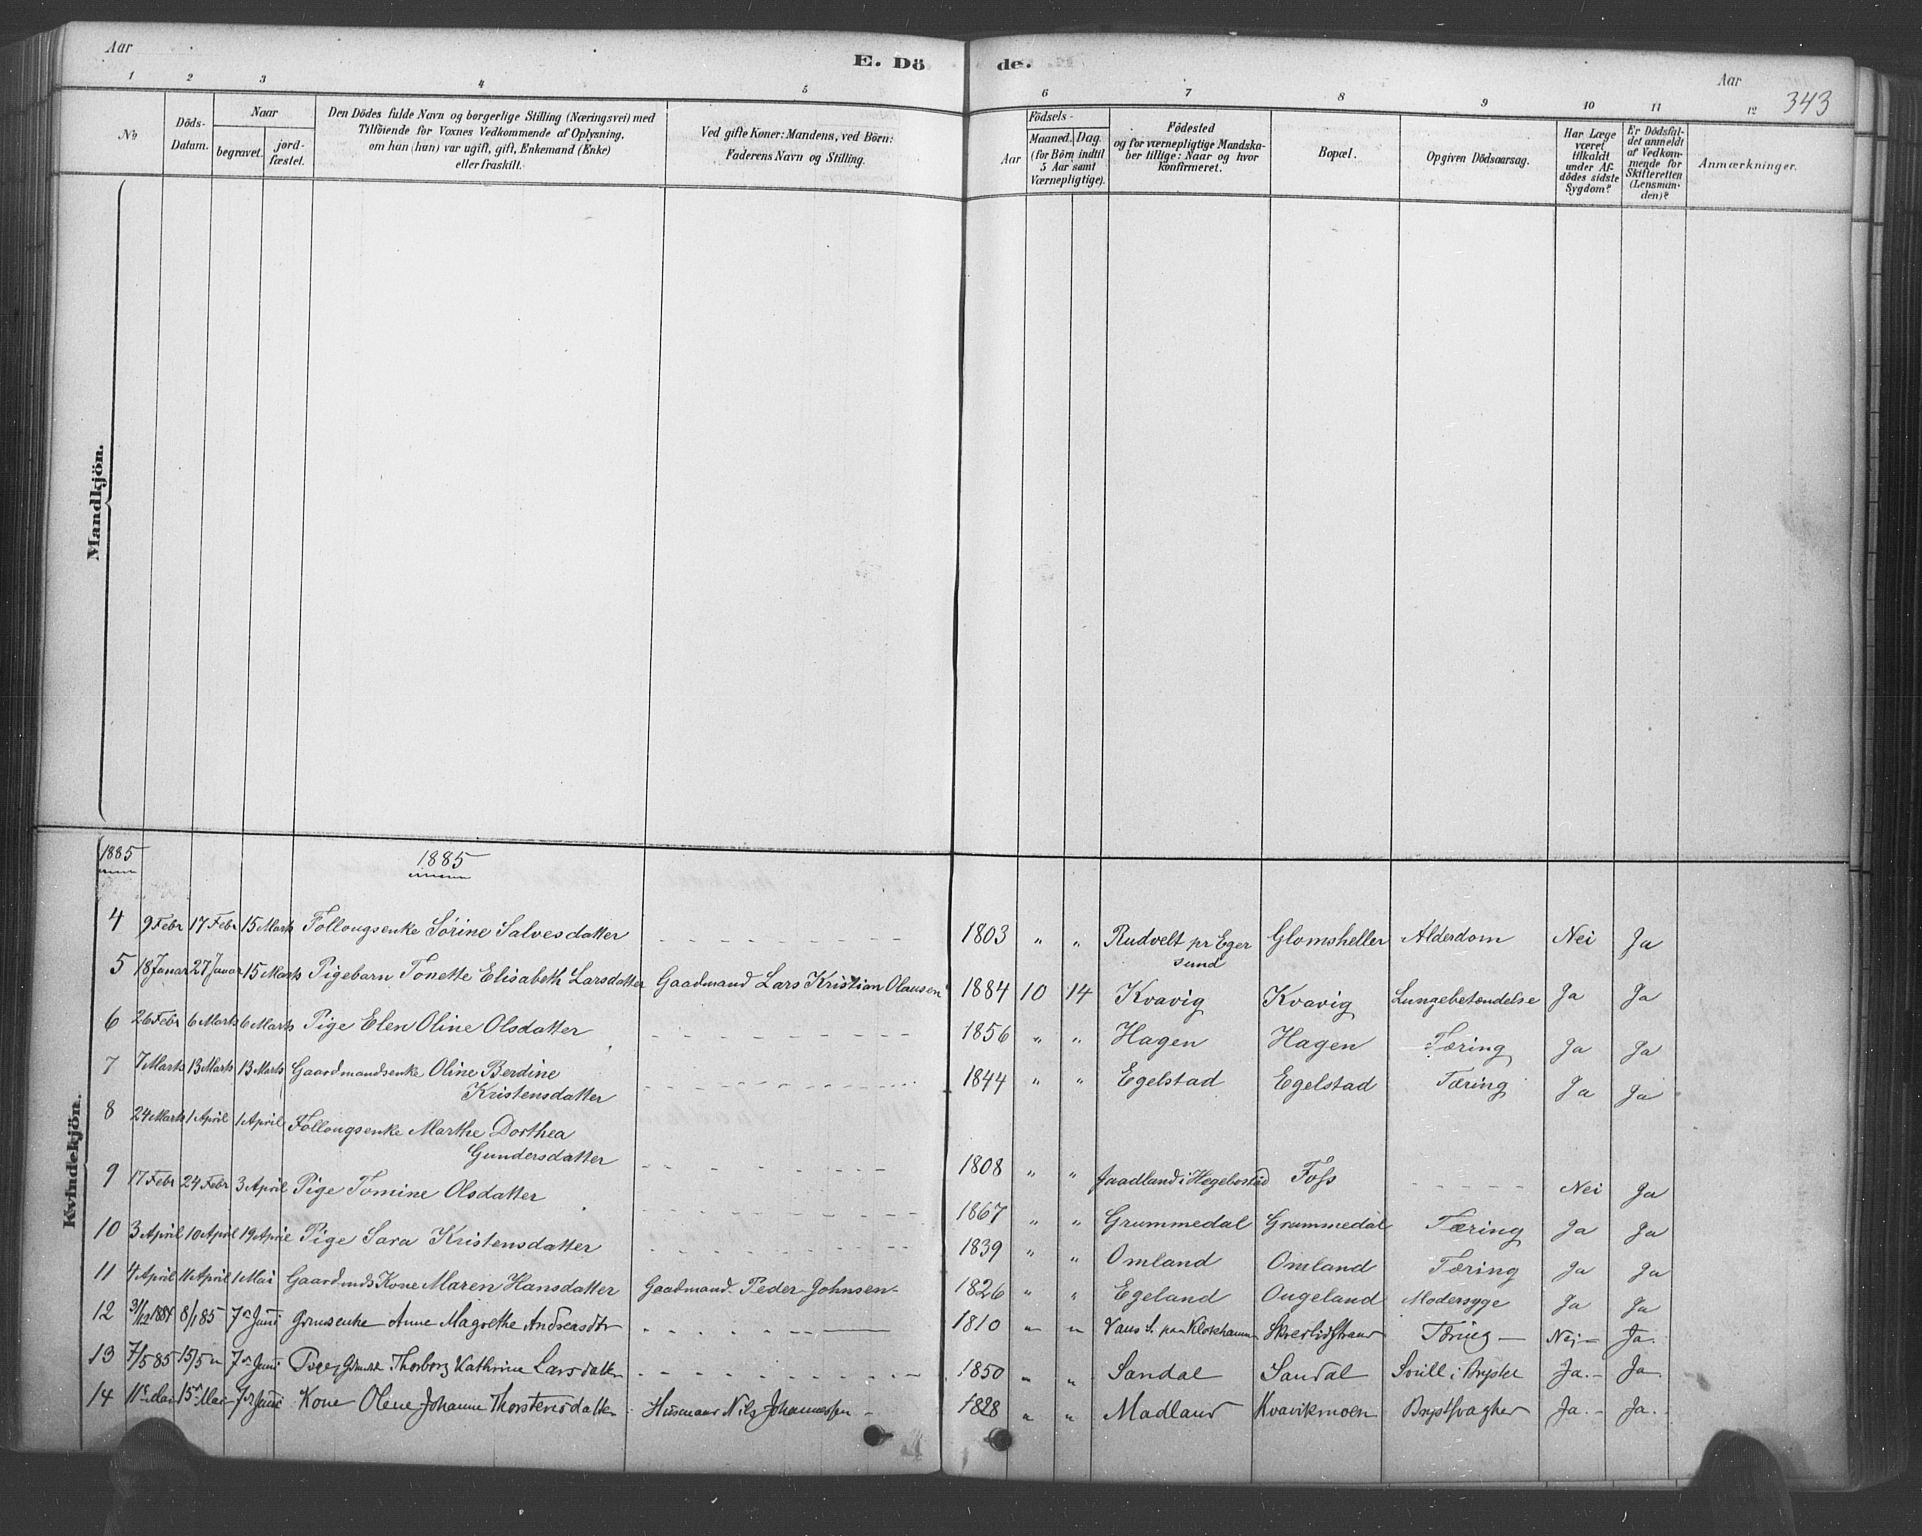 Aar
E. Dö
de.
Aar
343
1 2 3 4 5 6 7 8 9 10 11 12
No
Döds-Datum.
Naar
begravet.
jordfæstet.
Den Dödes fulde Navn og borgerlige Stilling (Næringsvei) med
Tilföiende for Voxnes Vedkommende af Oplysning,
om han (hun) var ugift, gift, Enkemand (Enke)
eller fraskilt.
Ved gifte Koner: Mandens, ved Börn:
Faderens Navn og Stilling.
Födsels-
Aar
Maaned. Dag.
(for Börn indtil
5 Aar samt
Værnepligtige).
Födested
og for værnepligtige Mandska-
ber tillige: Naar og hvor
konfirmeret.
Bopæl.
Opgiven Dödsaarsag.
Har Læge
været
tilkaldt
under Af-
dödes sidste
Sygdom?
Er Dödsfal-
det anmeldt
af Vedkom-
mende for
Skifteretten
(Lensman-
den)?
Anmærkninger.
Mandkjön.
Kvindekjön.
1885
1885
4 9 Febr 17 Febr 15 Marts Follougsenke Sørine Salvesdatter 1803 " " Rudvelt pr Egersund Glomsheller Alderdom Nei Ja
5 18 Januar 27 Januar 15 Marts Pigebarn Tonette Elisabeth Larsdatter Gaardmand Lars Kristian Olausen 1884 10 14 Kvavig Kvavig Lungebetændelse Ja Ja
6 26 Febr 6 Marts 6 Marts Pige Elen Oline Olsdatter 1856 " " Hagen Hagen Tæring Ja Ja
7 7 Marts 13 Marts 13 Marts Gaardmandsenke Oline Berdine
Kristensdatter 1844 " " Egelstad Egelstad Tæring Ja Ja
8 24 Marts 1 April 1 April Follougsenke Marthe Dorthea
Gundersdatter 1808 " " i Hegebostad Foss Nei Ja
9 17 Febr 24 Febr 3 April Pige Tomine Olsdatter 1867 " " Grummedal Grummedal Tæring Ja Ja
10 3 April 10 April 19 April Pige Sara Kristensdatter 1839 " " Omland Omland Tæring Ja Ja
11 4 April 11 April 1 Mai Gaardmds Kone Maren Hansdatter Gaardmand Peder Johnsen 1826 " " Egeland Ougeland Modersyge Ja Ja
12 31/12 1884 8/1 85 7de Juni Anne Magrethe Andreasdtr 1810 " " Tæring Nei Ja.
13 7/5 85 15/5 " 7de Juni Pige Thorborg Kathrine Larsdatter 1850 " " Sandal Sandal Svull i Bryster Ja. Ja.
14 11te Mai 15de Mai 7de Juni Kone Olene Johanne Thorstensdatter Husmand Nils Johannessen 1828 " " Madland Kvavikmoen Ja. Ja.